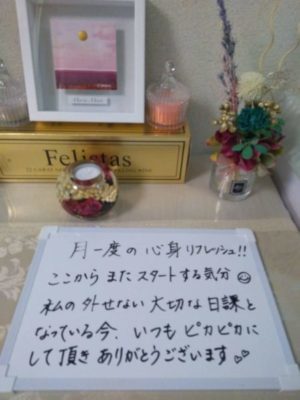 Felistas
月一度の心身リフレッシュ!!
ここからまたスタートする気分☺
私の外せない大切な日課と
なっている今、いつもピカピカに
して頂きありがとうございます♡♡